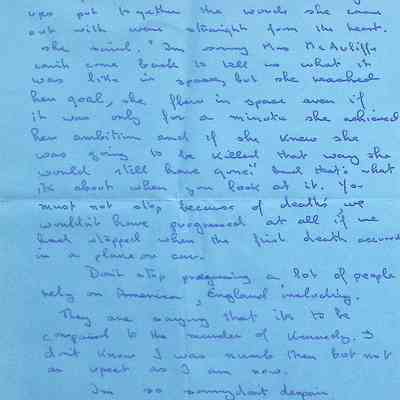 ups put together the words she came
out with were straight from the heart.
she said. "Im sorry Mrs McAuliffe
can't come back to tell us what it
was like in space, but she reached
her goal, she flew in space even if
it was only for a minute she achieved
her ambition and if she knew she
was going to be killed that way she
would still have gone." And that's what
its about when you look at it. You
must not stop because of deaths we
wouldn't have progressed at all if we
had stopped when the first death occured
in a plane or car.
Don't stop progressing a lot of people
rely on America, England including.
They are saying that its to be
compared to the murder of Kennedy. I
don't know I was numb then but not
as upset as I am now.
Im so sorry dont despair